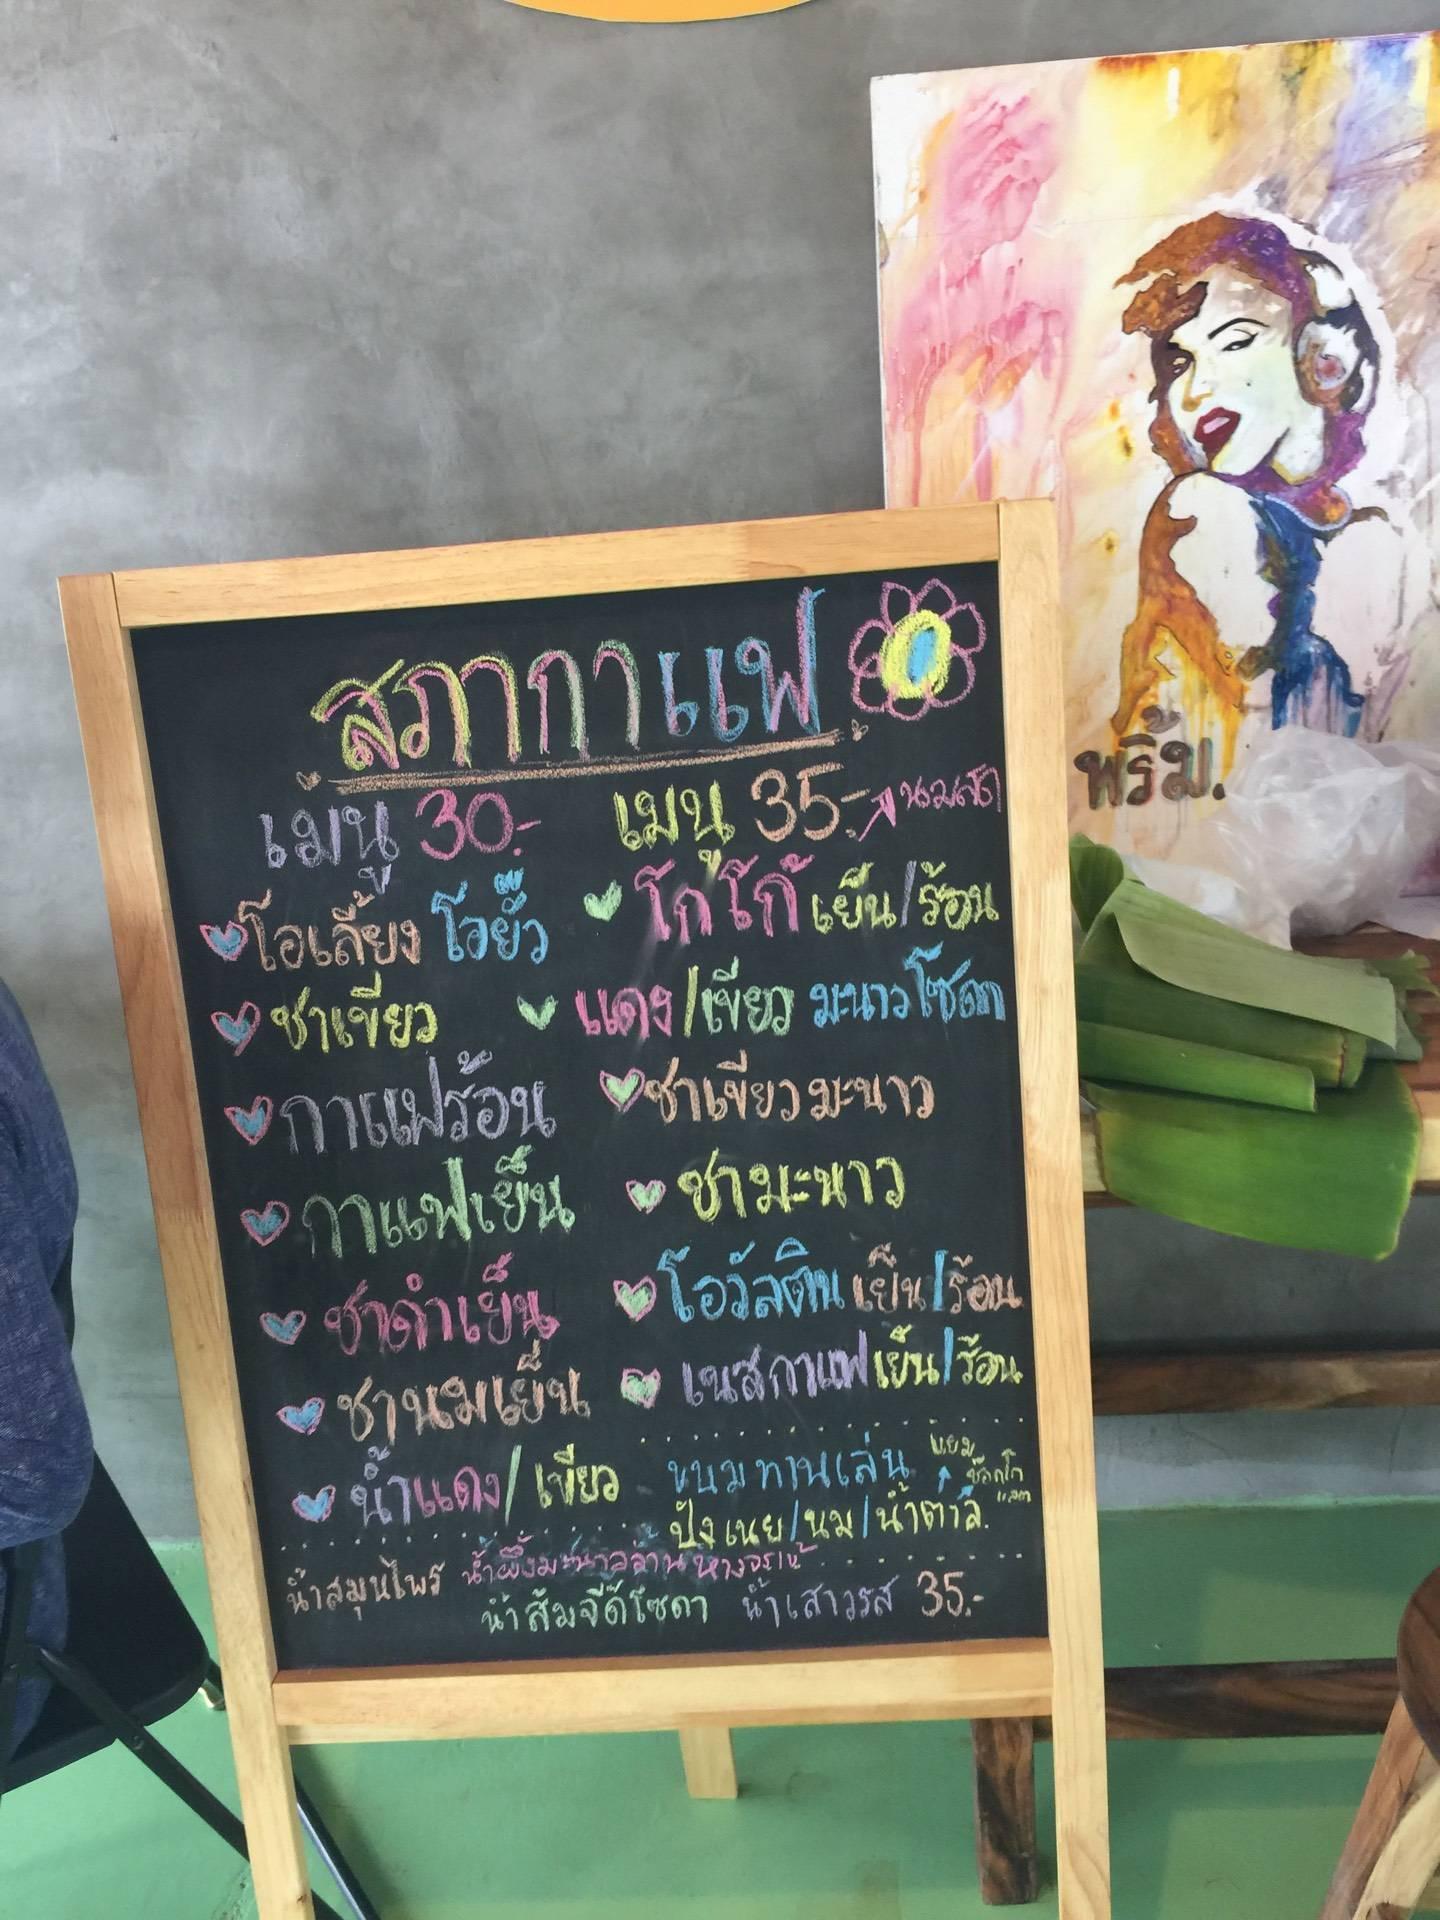 สภากาแฟ
เมนู 30.-
โอเลี้ยง โอยั๊ว
ชาเขียว
กาแฟร้อน
กาแฟเย็น
ชาดำเย็น
ชานมเย็น
น้ำแดง/เขียว
เมนู 35.- นมสด
โกโก้ เย็น/ร้อน
แดง/เขียว มะนาวโซดา
ชาเขียวมะนาว
ชามะนาว
โอวัลติน เย็น/ร้อน
เนสกาแฟ เย็น/ร้อน
ขนมทานเล่น
แยม
ช็อกโก
แลต
ปังเนย/นม/น้ำตาล.
น้ำสมุนไพร น้ำผึ้งมะนาวว่านหางจระเข้
น้ำส้มจี๊ดโซดา น้ำเสาวรส 35.-
พริ้ม.